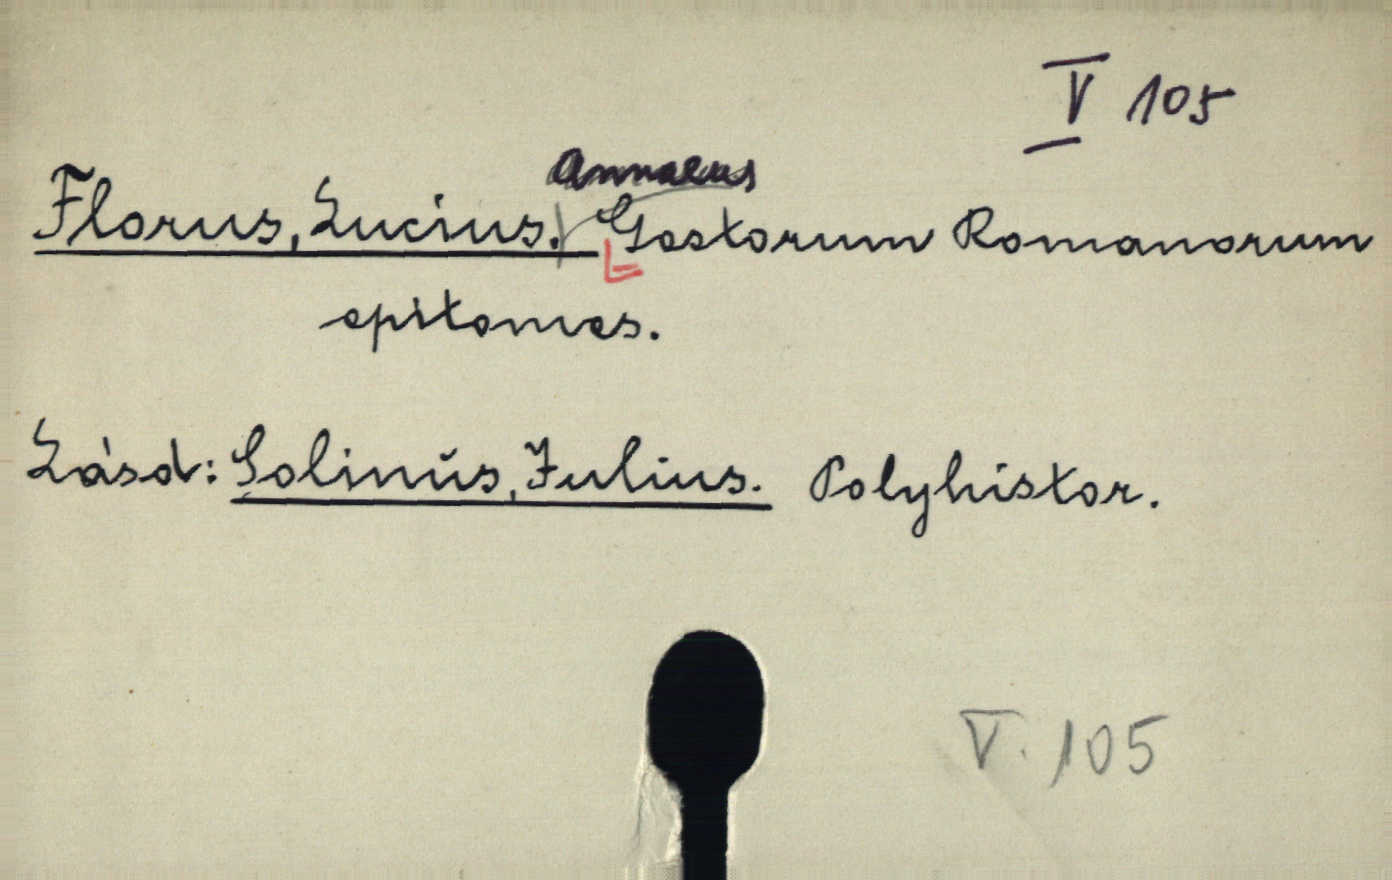 V 105
Annaeus
Florus, Lucius. Gestorum Romanorum
epitomes.
Lásd: Solinus, Julius. Polyhistor.
V. 105